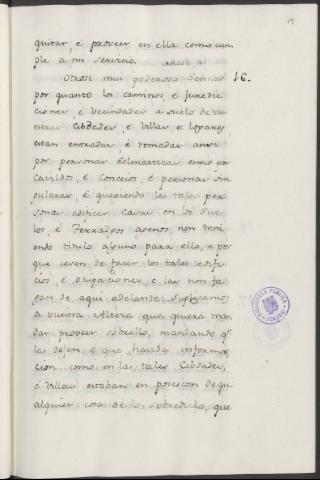 quitar, è proveer en ella como cum
ple a mi servicio.
Otrosi mui poderoso Señor 16.
por quanto los caminos, è juredic
ciones, è vecindades à suelo de vu
estras Cibdades, è Villas, è lugares,
estan entradas, è tomadas ansi
por personas Eclesiasticas como por
Cavildos, è Conceios, è personas sin
gulares, è queriendo las tales per
sonas edificar Casas en los sue
los, è Terrados agenos, non teni
endo titulo alguno para ello, è por
que cesen de facer los tales edifi
cios, è ocupaciones, è las non fa
gan de aqui adelante: Suplicamos
à vuestra Alteza que quiera man
dar proveer sobrello, mandando qᵉ
las dejen, è que haida informa
cion como en las tales Cibdades,
è Villas estaban en posesion de qu
alquier cosa de lo sobredicho, que
BIBLIOTECA PUBLICA
TOLEDO